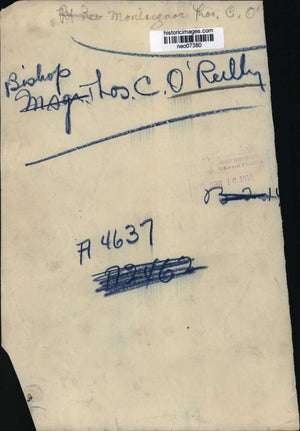 Rt Rev Monsignor Thos. C. O'
historicimages.com
neo07380
Bishop
Msgr. Thos. C. O'Reilly
A 4637